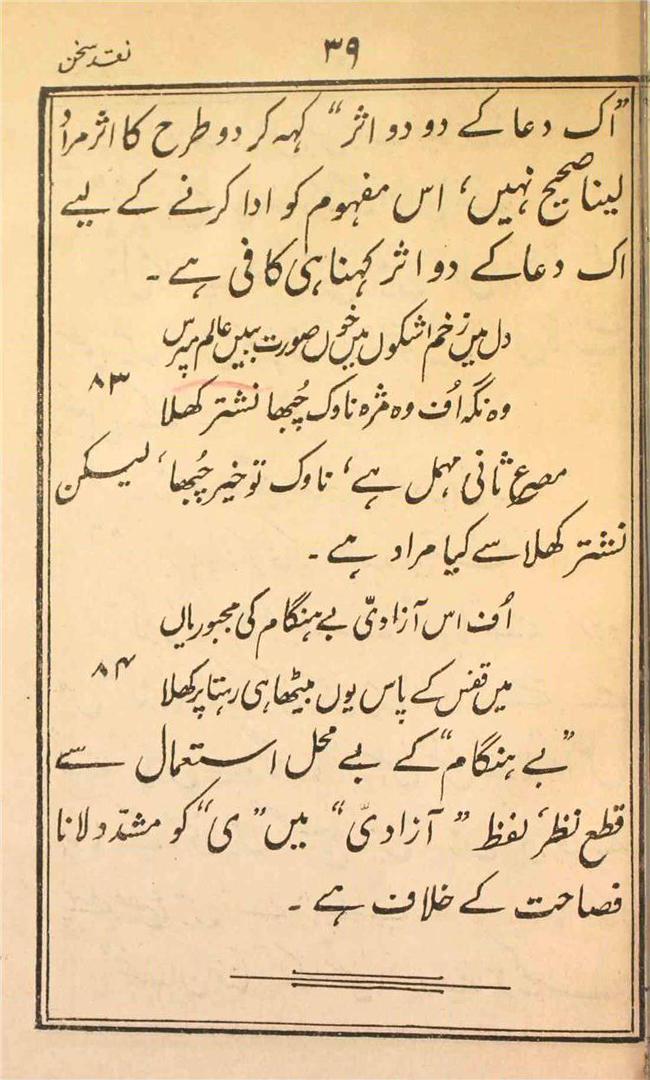 نقد سخن
۳۹
"اک دعا کے دو دو اثر" کہہ کر دو طرح کا اثر مراد
لینا صحیح نہیں، اس مفہوم کو ادا کرنے کے لیے
اک دعا کے دو اثر کہنا ہی کافی ہے۔
دل میں زخم اشکوں میں خوں صورت ببیں عالم مپرس
وہ نگہ اُف وہ مژہ ناوک چُبھا نشتر کھلا
۸۳
مصرعِ ثانی مہمل ہے، ناوک تو خیر چُبھا، لیکن
نشتر کھلا سے کیا مراد ہے۔
اُف اس آزادیّ بے ہنگام کی مجبوریاں
میں قفس کے پاس یوں بیٹھا ہی رہتا پر کھلا
۸۴
"بے ہنگام" کے بے محل استعمال سے
قطع نظر، لفظ "آزادیّ" میں "ی" کو مشدّد لانا
فصاحت کے خلاف ہے۔